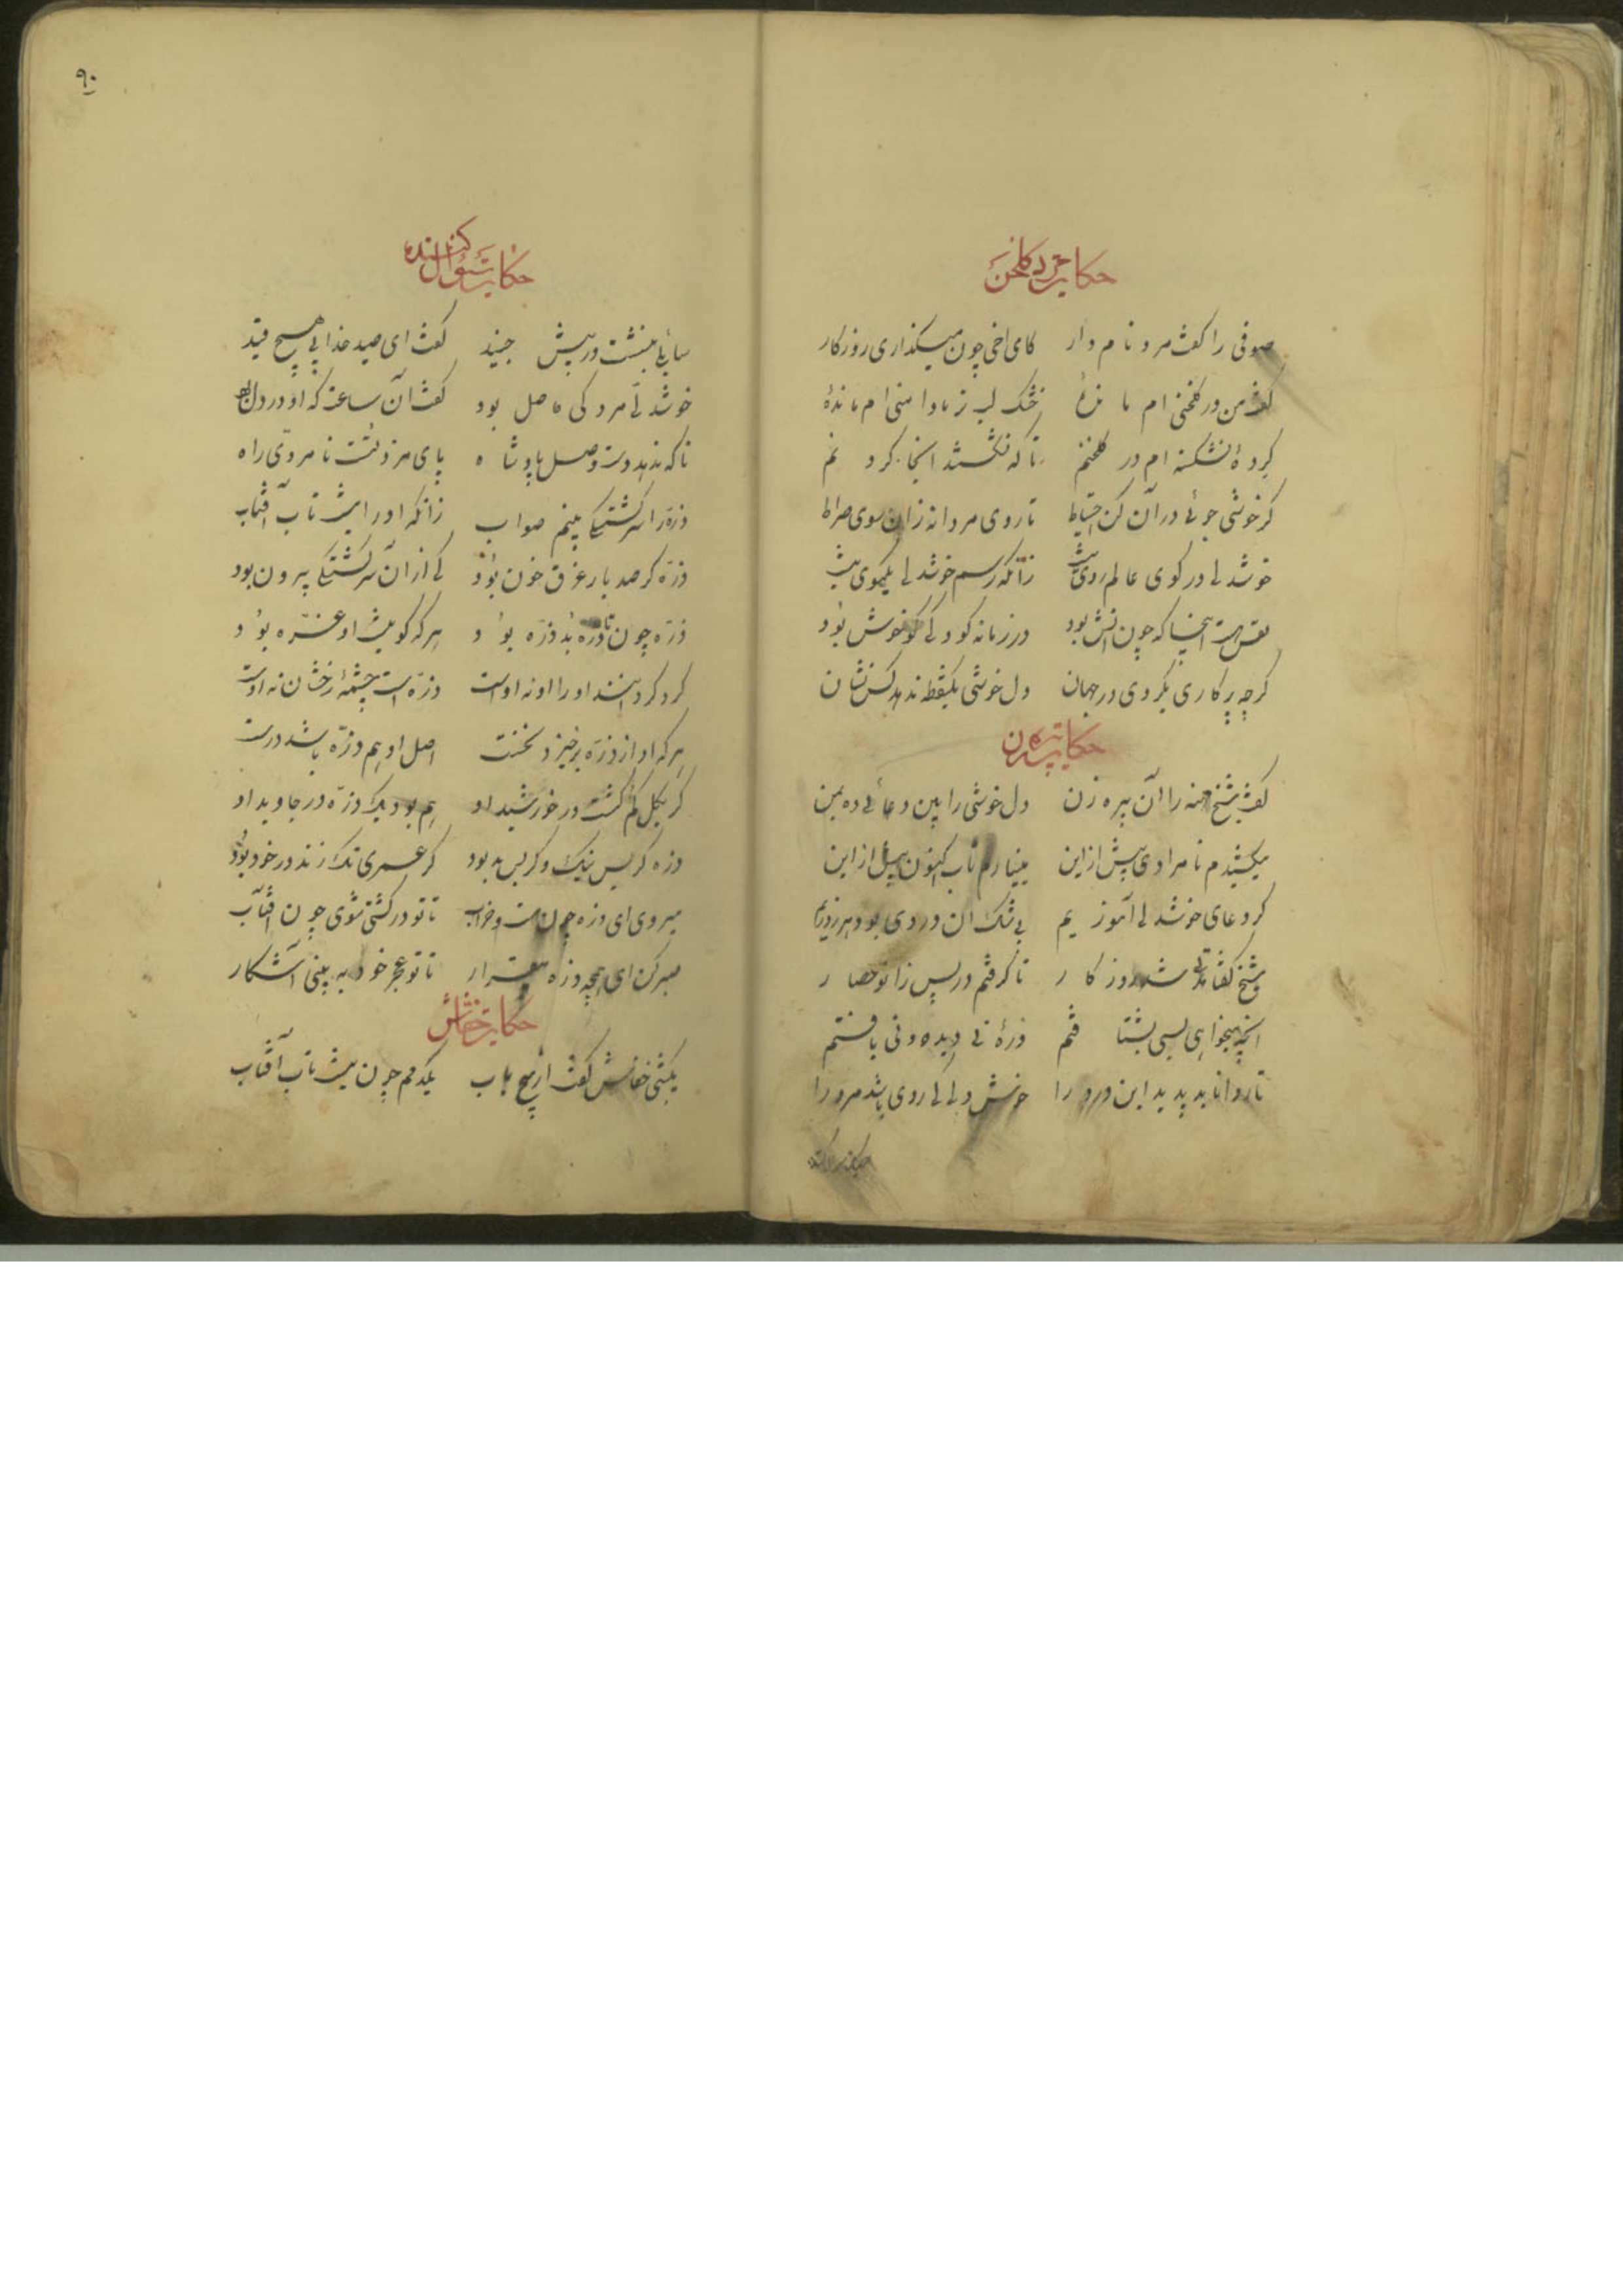 حکایت مرد کلخن
صوفی را کفت مرد نام دار کای اخی چون میکذاری روزکار
کفت من در کلخنی ام مانده خشک لب تر دامنی ام مانده
کرده نشکسته ام در کلخنم تا که نشکستند انجا کرد نم
کر خوشی جوئی در آن کن احتیاط تا روی مردانه زان سوی صراط
خوشدلی در کوی عالم روی نیست زانکه رسم خوشدلی یکموی نیست
نفس هست اینجا که چون اتش بود در زمانه کو دلی کو خوش بود
کر چه پرکاری بکردی در جهان دل خوشی یکنقطه ندهد کس نشان
حکایت پیره زن
کفت شیخ مهنه را آن پیره زن دل خوشی را هین دعائی ده بمن
میکشیدم نامرادی پیش از این می نیارم تاب اکنون بیش از این
کر دعای خوشدلی آموزیم بی شک ان وردی بود هر روزیم
شیخ کفتا مدتی شد روزکار تا کرفتم در پس زانو حصار
انچه میخواهی بسی بشتافتم ذره نی دیده و نی یافتم
تا دوا ناید پدید این درد را خوش دلی کی روی باشد مرد را
۹۰
حکایت سؤال کننده
سایلی بنشست در پیش جنید کفت ای صید خدا بی هیچ قید
خوشدلی مرد کی حاصل بود کفت آن ساعت که او در دل بود
تا که ندهد دست وصل پادشاه پای مرد تست نامردی راه
ذره را سرکشتکی بینم صواب زانکه او را نیست تاب آفتاب
ذره کر صد بار غرق خون بود کی از آن سرکشتکی بیرون بود
ذره چون تا ذره بد ذره بود هر که کوید نیست او غره بود
کرد کردانند او را او نه اوست ذره است چشمۀ رخشان نه اوست
هر که او از ذره برخیزد نخست اصل او هم ذره باشد درست
کر بکل کم کشت در خورشید او هم بود یک ذره در جاوید او
ذره کر بس نیک و کر بس بد بود کر عمری تک زند در خود بود
میروی ای ذره چون مست و خراب تا تو در کشتی شوی چون آفتاب
صبر کن ای همچو ذره بیقرار تا تو عجز خود به بینی آشکار
حکایت خفاش
یکشبی خفاش کفت از هیچ باب یکدمم چون نیست تاب آفتاب